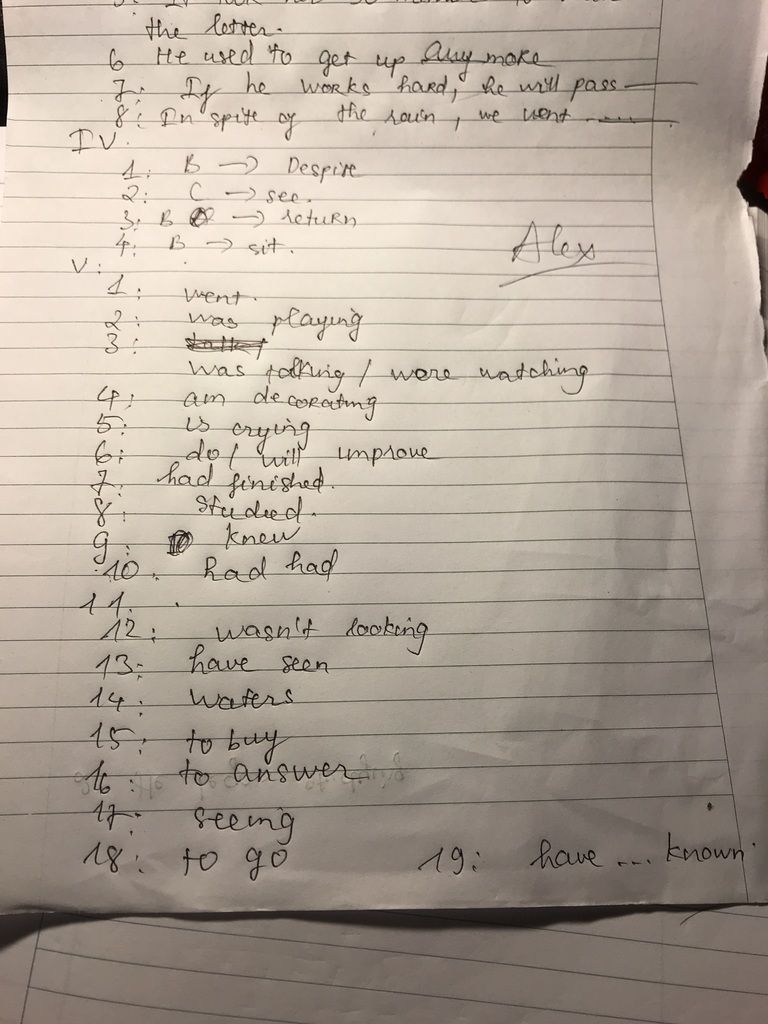 the letter.
6 He used to get up any make
7: If he works hard, he will pass
8: In spite of the rain, we went
IV.
1: B → Despite
2: C → see.
3: B → return
4: B → sit.
Alex
V:
1: went.
2: was playing
3:
was talking / were watching
4: am decorating
5: is crying
6: do / will improve
7: had finished.
8: studied.
9: knew
10. had had
11.
12: wasn't looking
13: have seen
14: waters
15: to buy
16: to answer
17: seeing
18: to go 19: have ... known